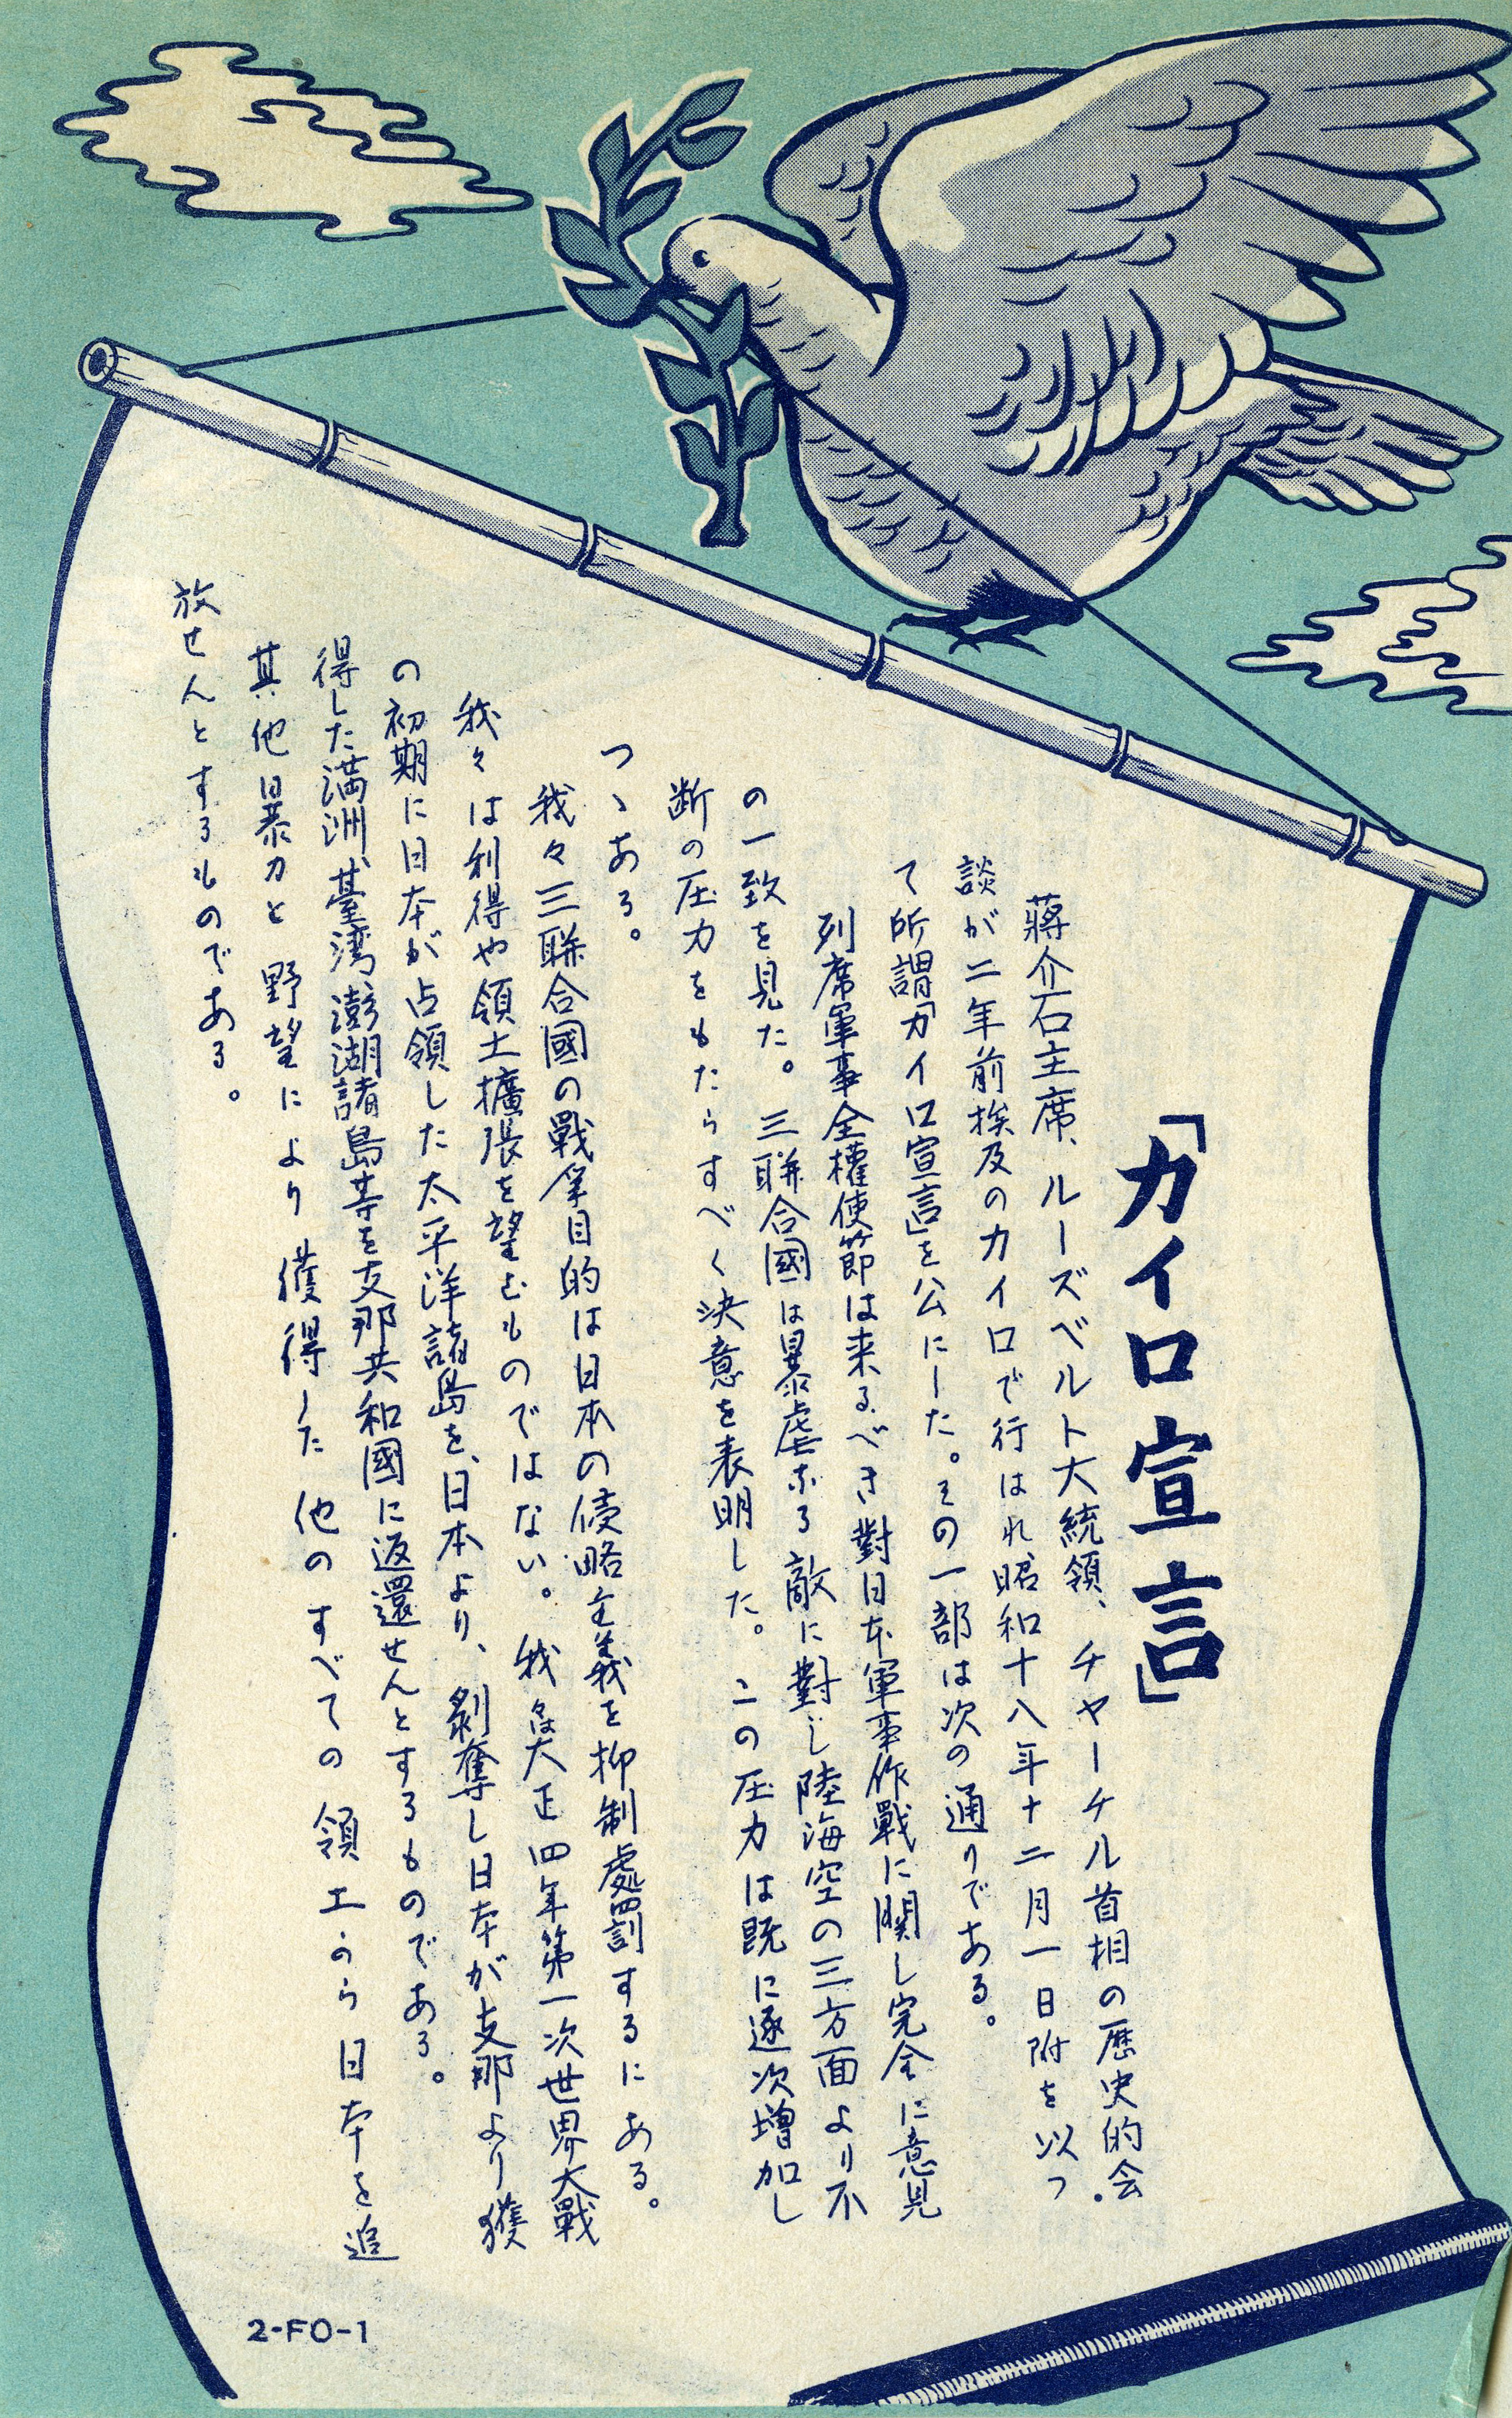 「カイロ宣言」
蔣介石主席、ルーズベルト大統領、チャーチル首相の歴史的会
談が二年前挨及のカイロで行はれ、昭和十八年十二月一日附を以つ
て所謂「カイロ宣言」を公にした。その一部は次の通りである。
列席軍事全權使節は来るべき對日本軍事作戰に関し完全に意見
の一致を見た。三聯合國は暴虐なる敵に對し陸海空の三方面より不
断の圧力をもたらすべく決意を表明した。この圧力は既に逐次増加し
つゝある。
我々三聯合國の戰争目的は日本の侵略主義を抑制處罰するにある。
我々は利得や領土擴張を望むものではない。我々は大正四年第一次世界大戰
の初期に日本が占領した太平洋諸島を、日本より、剝奪し日本が支那より獲
得した満洲、臺湾、澎湖諸島等を支那共和國に返還せんとするものである。
其他暴力と野望により獲得した他のすべての領土から日本を追
放せんとするものである。
2-FO-1